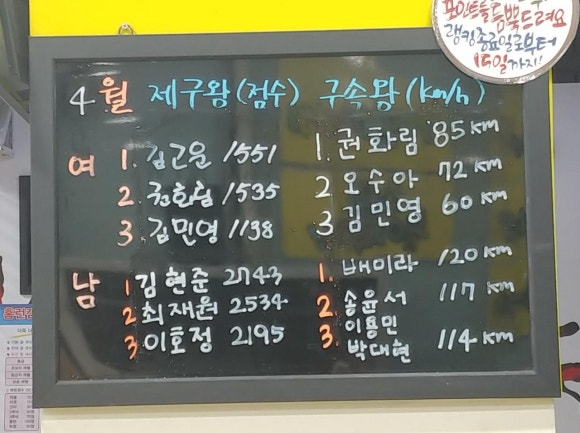 포인트를 듬뿍드려요
랭킹종료일로부터
15일까지!
4월 제구왕(점수) 구속왕(km/h)
여 1. 김고운 1551 1. 권화림 85 KM
2. 권화림 1535 2 오수아 72 KM
3. 김민영 1138 3 김민영 60 KM
남 1 김현준 2743 1. 배미라 120 KM
2 최재원 2534 2. 송윤서 117 KM
3 이호정 2195 3. 이용민
박대현 114 KM